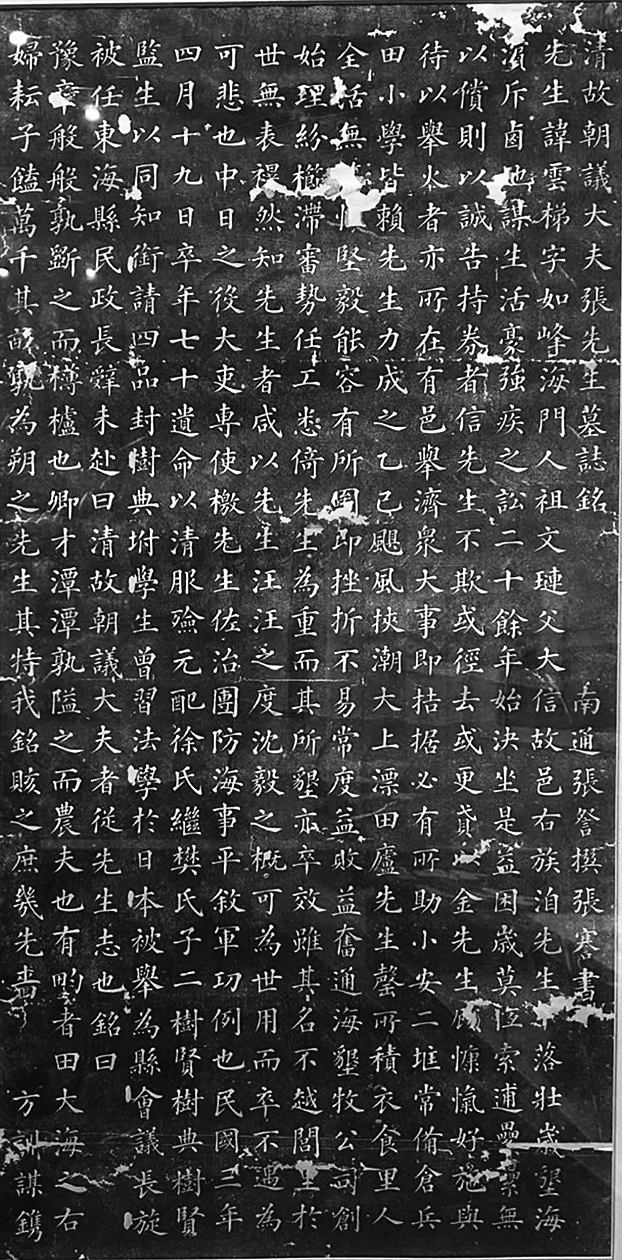 清故朝議大夫張先生墓誌銘 南通張詧撰張謇書
先生諱雲梯字如峰海門人祖文璉父大信故邑右族洎先生落壯歲墾海
濱斥鹵地謀生活豪強疾之訟二十餘年始決坐是益困歲莫恆索逋疊纍無
以償則以誠告持券者信先生不欺或徑去或更貣金先生顧慷愾好施與
待以舉火者亦所在有邑舉濟衆大事即拮据必有所助小安二堆常備倉兵
田小學皆賴先生力成之乙巳颶風挾潮大上漂田廬先生罄所積衣食里人
全活無性堅毅能容有所圖即挫折不易常度益敗益奮通海墾牧公司創
始理紛櫛滯審勢任工悉倚先生為重而其所墾亦卒效雖其名不越閭里於
世無表襮然知先生者咸以先生汪汪之度沈毅之概可為世用而卒不遇為
可悲也中日之役大吏專使檄先生佐治團防海事平敘軍功例也民國三年
四月十九日卒年七十遺命以清服殮元配徐氏繼樊氏子二樹賢樹典樹賢
監生以同知銜請四品封樹典坿學生曾習法學於日本被舉為縣會議長旋
被任東海縣民政長辤未赴曰清故朝議大夫者從先生志也銘曰
豫章般般孰斲之而樽櫨也卿才潭潭孰隘之而農夫也有畇者田大海之右
婦耘子饁萬千其畝孰為朔之先生其特我銘賅之庶幾先嗇 方訓謀鐫